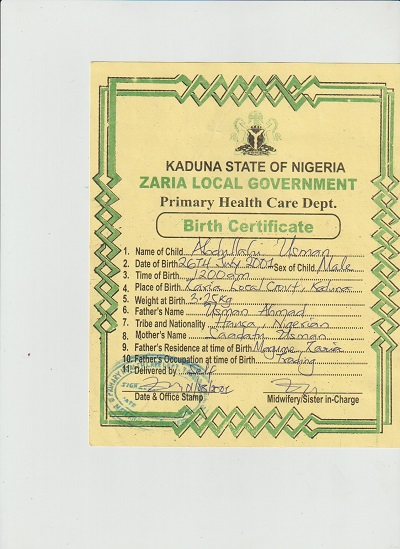 KADUNA STATE OF NIGERIA
ZARIA LOCAL GOVERNMENT
Primary Health Care Dept.
Birth Certificate
1. Name of Child Abdullahi Usman
2. Date of Birth 26TH July 2001 Sex of Child Male
3. Time of Birth 1200am
4. Place of Birth Zaria Local Govt, Kaduna
5. Weight at Birth 3.25kg
6. Father's Name Usman Ahmad
7. Tribe and Nationality Hausa, Nigerian
8. Mother's Name Saadatu Usman
9. Father's Residence at time of Birth Zaria
10. Father's Occupation at time of Birth Trading
11. Delivered by Self
SIGN
DATE
Date & Office Stamp Midwifery/Sister in-Charge